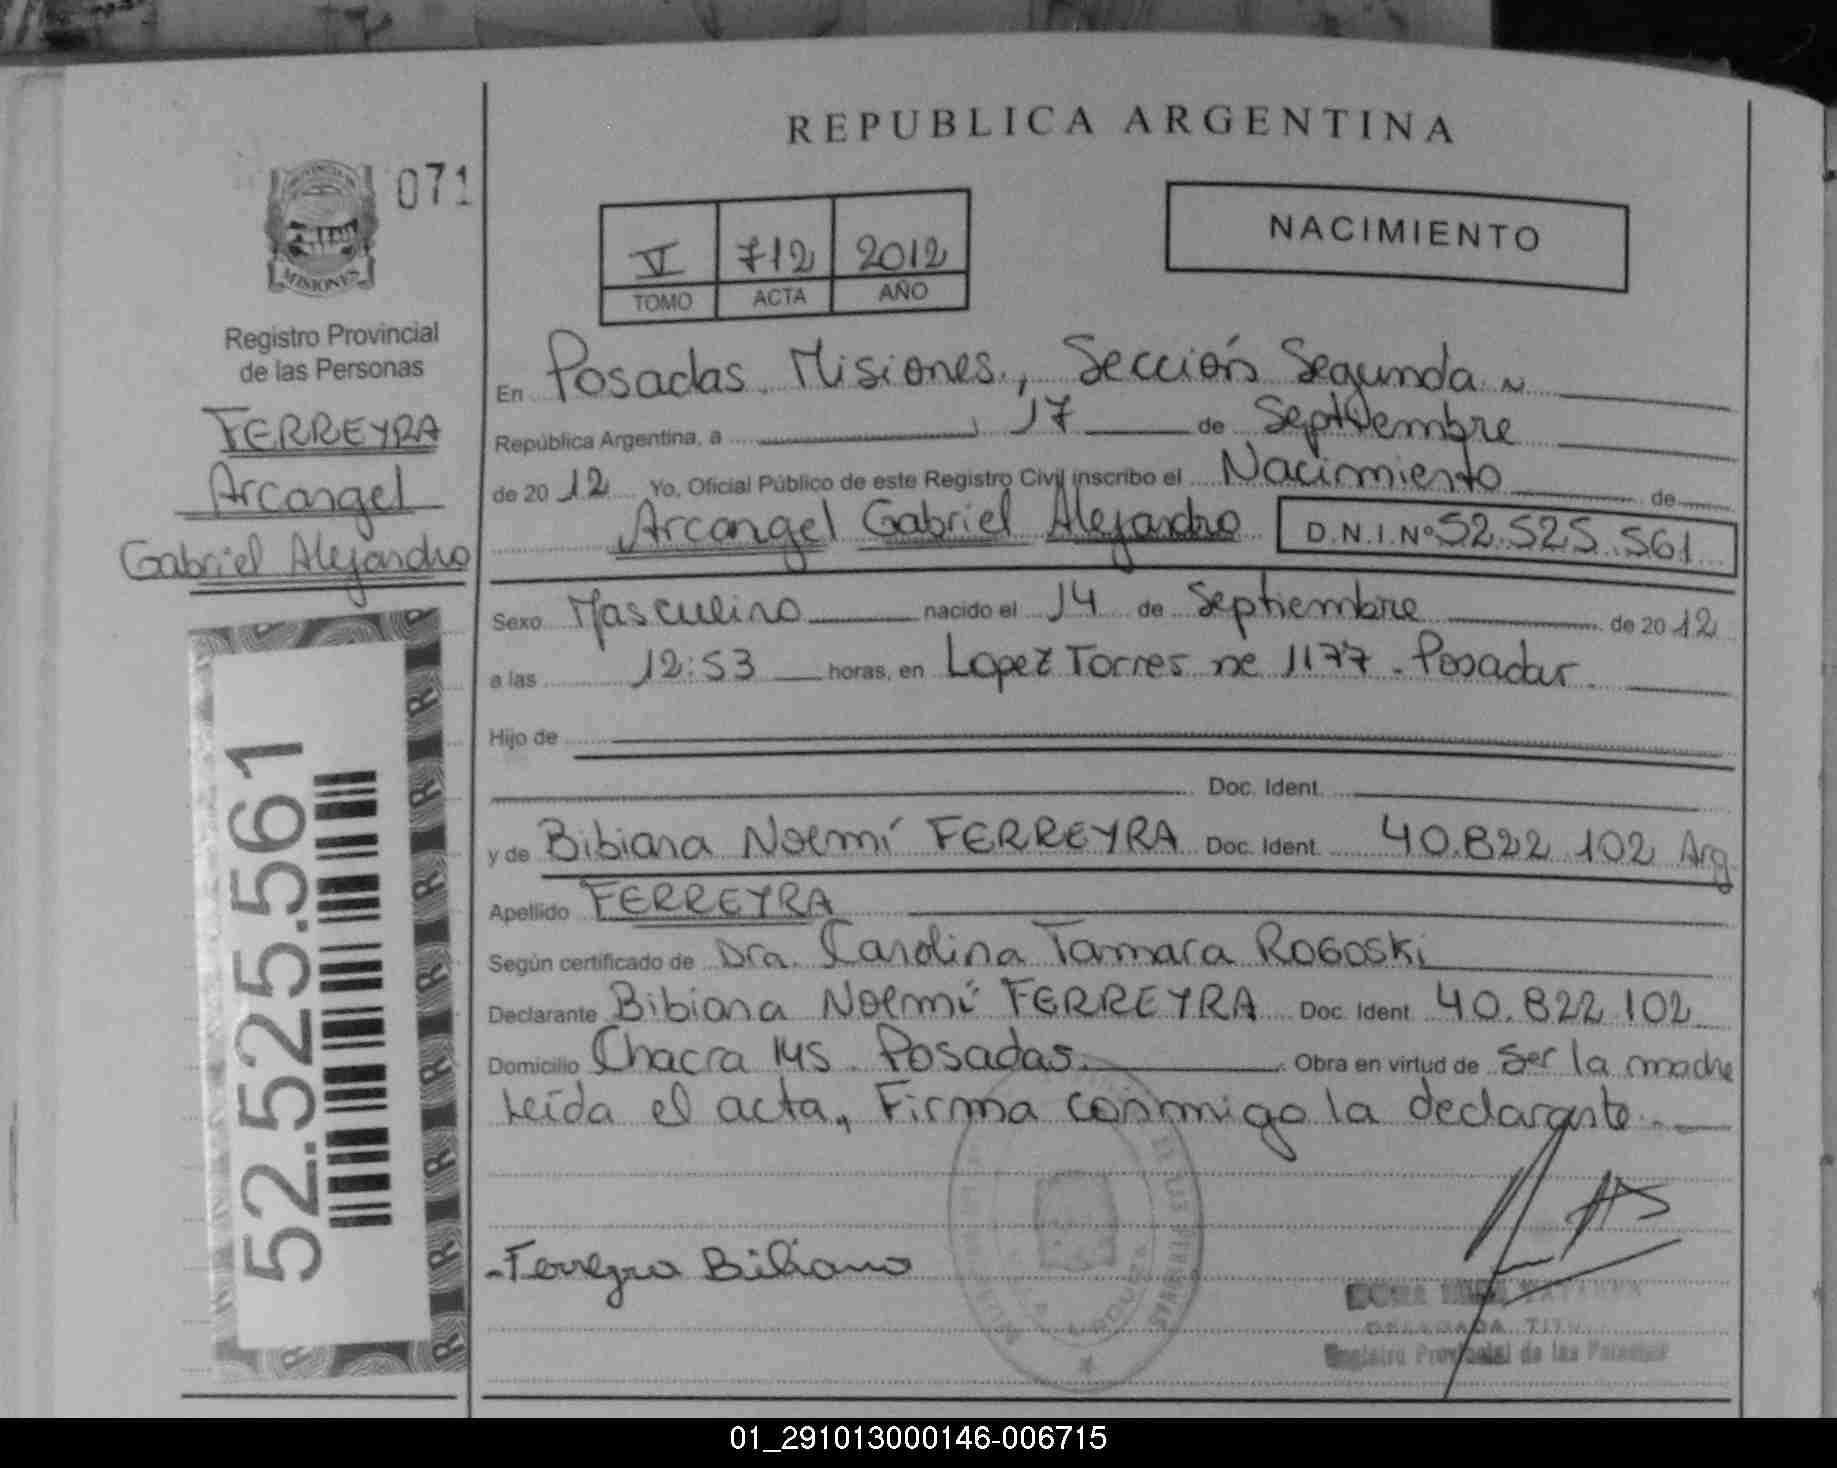 REPUBLICA ARGENTINA
071
MISIONES
Registro Provincial
de las Personas
FERREYRA
Arcangel
Gabriel Alejandro
52.525.561
R R R R R R R R
V 712 2012
TOMO ACTA AÑO
NACIMIENTO
En Posadas. Misiones., Sección Segunda
República Argentina, a 17 de Septiembre
de 20 12 Yo, Oficial Público de este Registro Civil inscribo el Nacimiento de
Arcangel Gabriel Alejandro D.N.I.Nº 52.525.561
Sexo Masculino nacido el 14 de Septiembre de 20 12
a las 12:53 horas, en Lopez Torres ne 1177 - Posadas.
Hijo de
Doc. Ident.
y de Bibiana Noemí FERREYRA Doc. Ident. 40.822.102 Arg.
Apellido FERREYRA
Según certificado de Dra. Carolina Tamara ROGOSKI
Declarante Bibiana Noemí FERREYRA Doc. Ident 40.822.102
Domicilio Chacra 145. Posadas. Obra en virtud de Ser la madre
Leída el acta, Firma conmigo la declarante.
Ferreyra Bibiana
Registro Provincial de las Personas
01_291013000146-006715